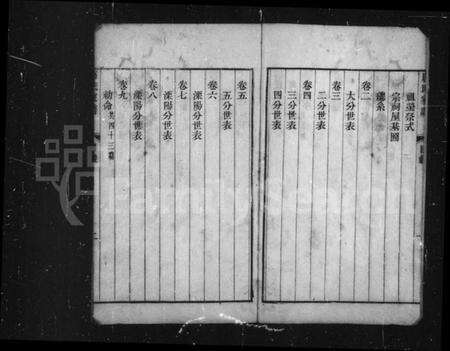 祠墓祭式
宗祠屋基圖
世系
卷二
大分世表
卷三
二分世表
卷四
三分世表
四分世表
卷五
五分世表
卷六
溧陽分世表
卷七
溧陽分世表
卷八
溧陽分世表
卷九
FamilySearch